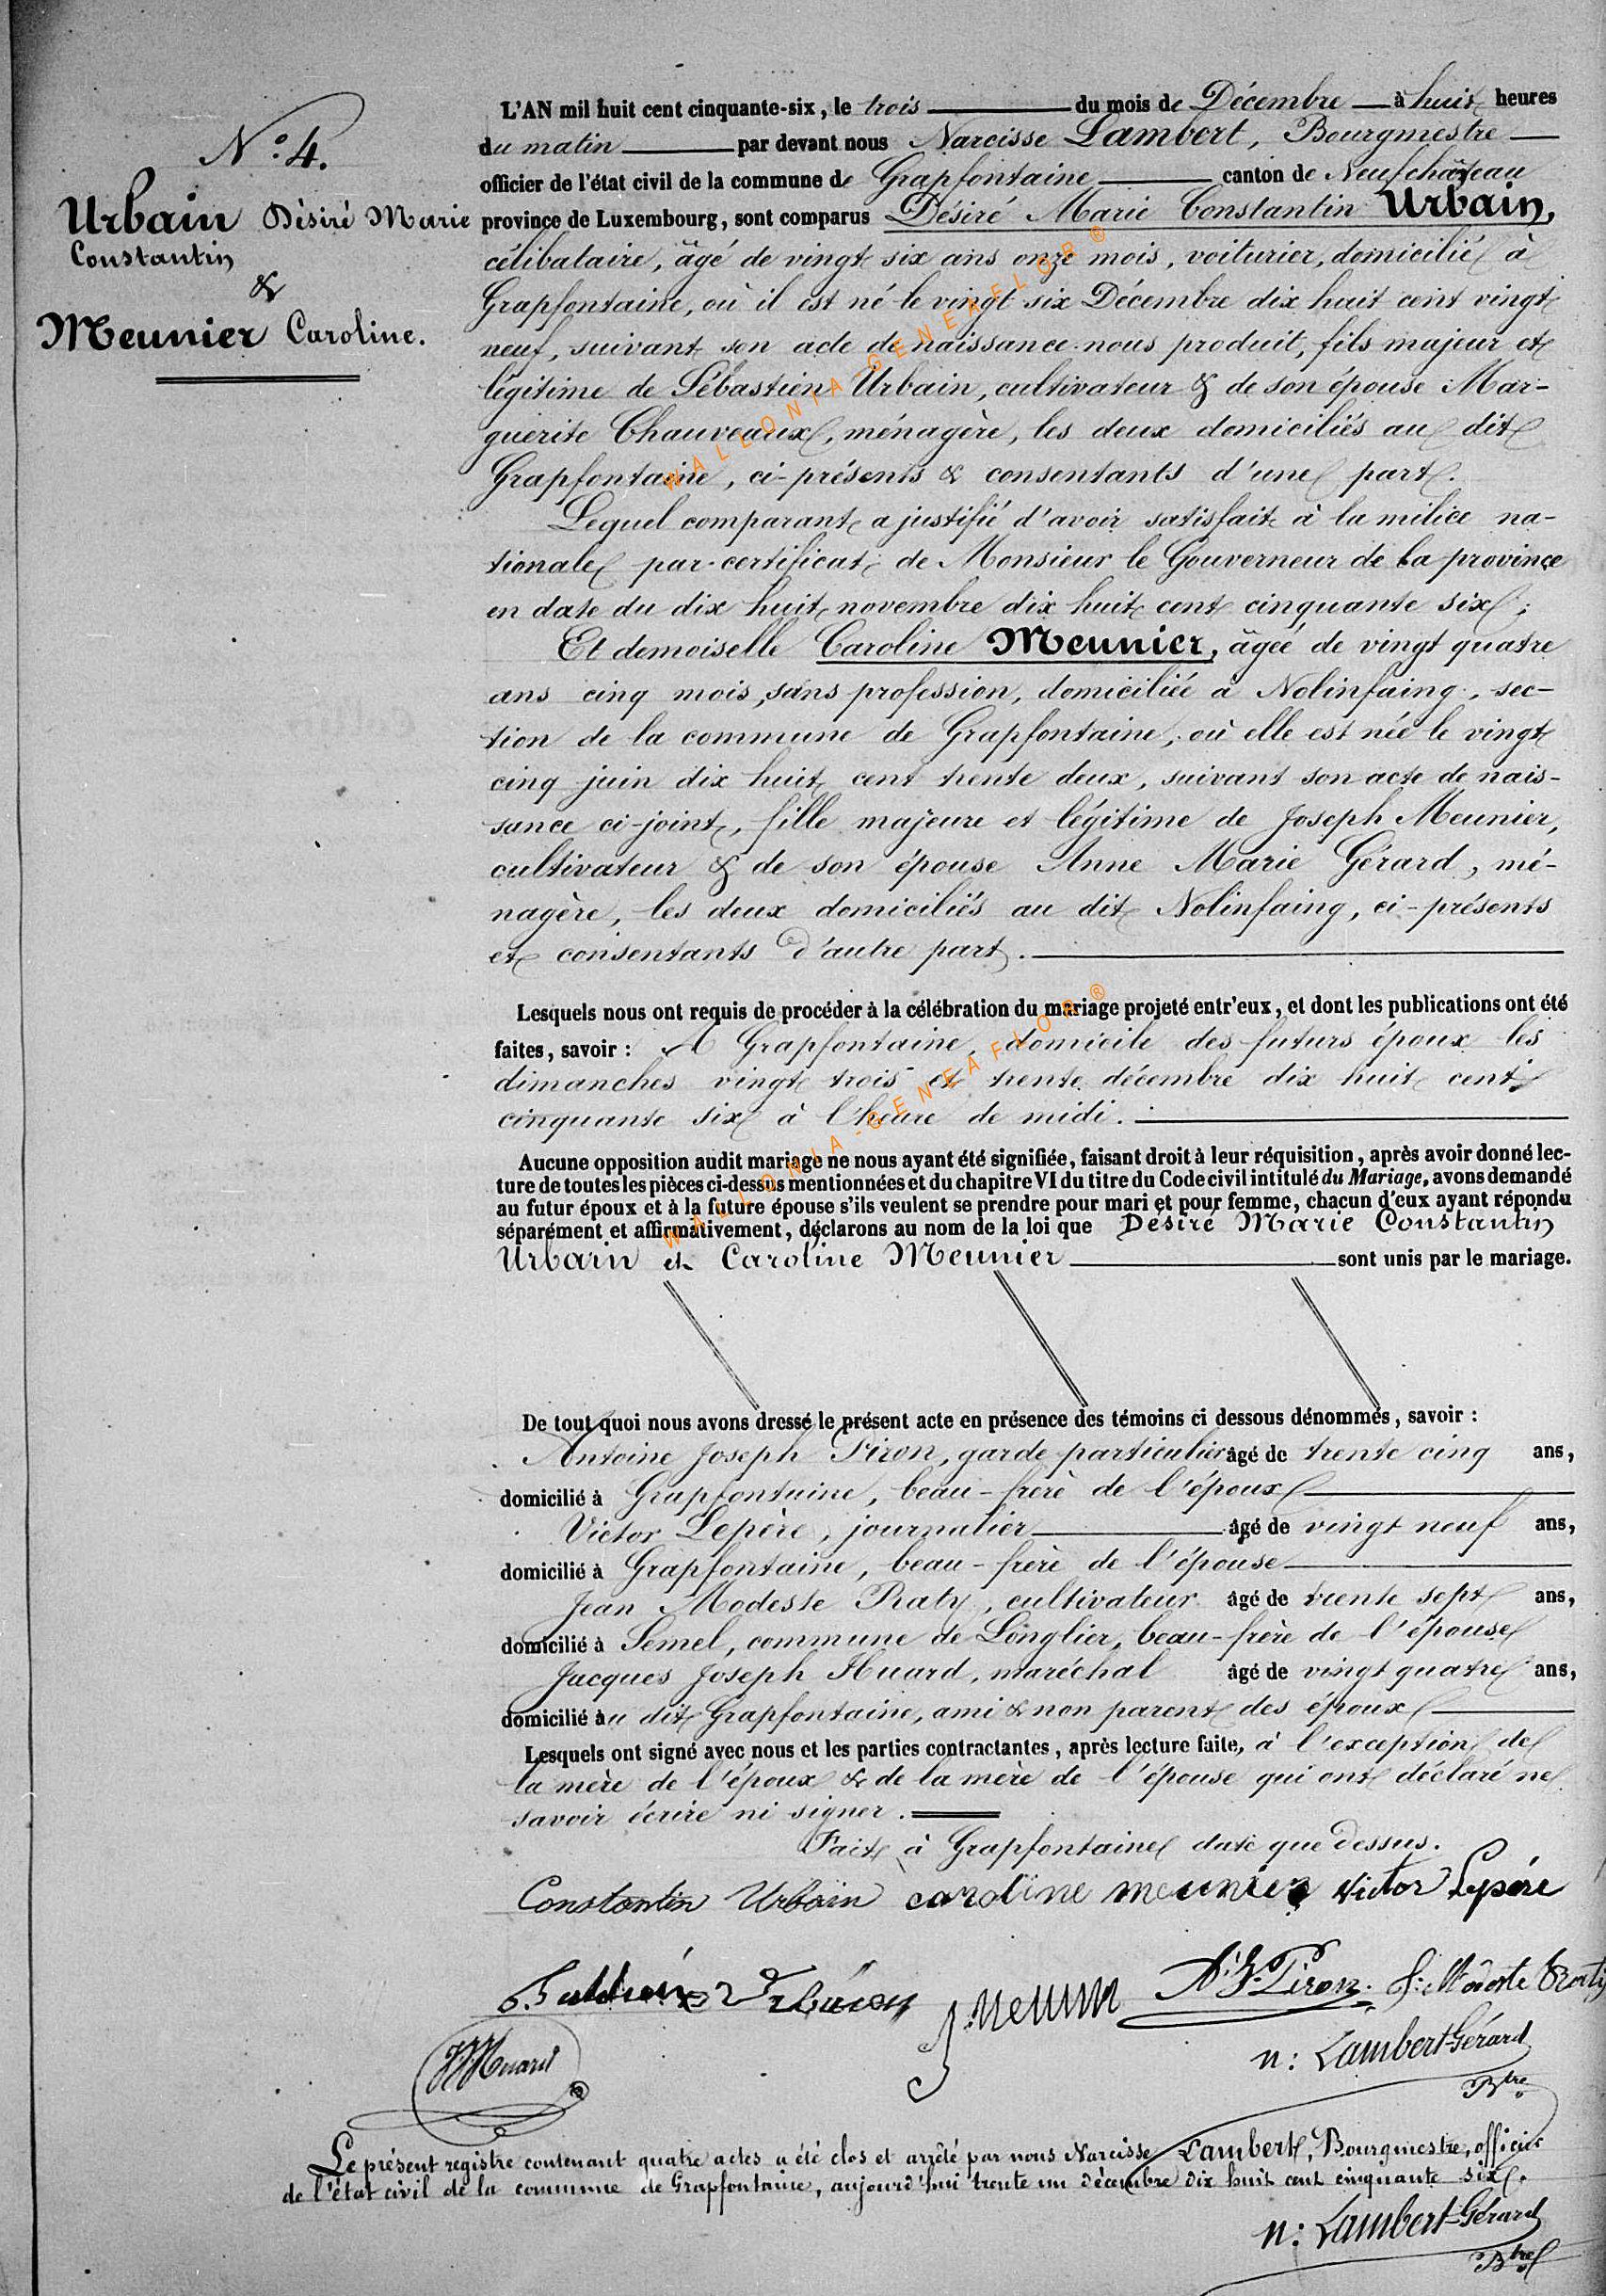 N.° 4.
Urbain Désiré Marie
Constantin
&
Meunier Caroline.
L'AN mil huit cent cinquante-six, le trois du mois de Décembre à huit heures
du matin par devant nous Narcisse Lambert, Bourgmestre
officier de l'état civil de la commune de Grapfontaine canton de Neufchâteau
province de Luxembourg, sont comparus Désiré Marie Constantin Urbain,
célibataire, âgé de vingt six ans onze mois, voiturier, domicilié à
Grapfontaine, où il est né le vingt six Décembre dix huit cent vingt
neuf, suivant son acte de naissance nous produit, fils majeur et
légitime de Sébastien Urbain, cultivateur & de son épouse Mar-
guerite Chauveaux, ménagère, les deux domiciliés au dit
Grapfontaine, ci-présents & consentants d'une part.
Lequel comparant a justifié d'avoir satisfait à la milice na-
tionale par certificat de Monsieur le Gouverneur de la province
en date du dix huit novembre dix huit cent cinquante six;
Et demoiselle Caroline Meunier, âgée de vingt quatre
ans cinq mois, sans profession, domiciliée à Nolinfaing, sec-
tion de la commune de Grapfontaine, où elle est née le vingt
cinq juin dix huit cent trente deux, suivant son acte de nais-
sance ci-joint, fille majeure et légitime de Joseph Meunier,
cultivateur & de son épouse Anne Marie Gérard, mé-
nagère, les deux domiciliés au dit Nolinfaing, ci-présents
et consentants d'autre part.
Lesquels nous ont requis de procéder à la célébration du mariage projeté entr'eux, et dont les publications ont été
faites, savoir : A Grapfontaine, domicile des futurs époux les
dimanches vingt trois et trente décembre dix huit cent
cinquante six à l'heure de midi.
Aucune opposition audit mariage ne nous ayant été signifiée, faisant droit à leur réquisition, après avoir donné lec-
ture de toutes les pièces ci-dessus mentionnées et du chapitre VI du titre du Code civil intitulé du Mariage, avons demandé
au futur époux et à la future épouse s'ils veulent se prendre pour mari et pour femme, chacun d'eux ayant répondu
séparément et affirmativement, déclarons au nom de la loi que Désiré Marie Constantin
Urbain et Caroline Meunier sont unis par le mariage.
De tout quoi nous avons dressé le présent acte en présence des témoins ci dessous dénommés, savoir :
Antoine Joseph Piron, garde particulier âgé de trente cinq ans,
domicilié à Grapfontaine, beau-frère de l'époux
Victor Lepère, journalier âgé de vingt neuf ans,
domicilié à Grapfontaine, beau-frère de l'épouse
Jean Modeste Praty, cultivateur âgé de trente sept ans,
domicilié à Semel, commune de Longlier, beau-frère de l'épouse
Jacques Joseph Huard, maréchal âgé de vingt quatre ans,
domicilié au dit Grapfontaine, ami & non parent des époux
Lesquels ont signé avec nous et les parties contractantes, après lecture faite, à l'exception de
la mère de l'époux & de la mère de l'épouse qui ont déclaré ne
savoir écrire ni signer.
Fait à Grapfontaine date que dessus.
Constantin Urbain caroline meunier Victor Lepère
Urbain J Meunier A. J. Piron. J: Modeste Praty
JJHuard n: Lambert-Gérard
Btre
Le présent registre contenant quatre actes a été clos et arrêté par nous Narcisse Lambert, Bourgmestre, officier
de l'état civil de la commune de Grapfontaine, aujourd'hui trente un décembre dix huit cent cinquante six.
n: Lambert-Gérard
Btre
WALLONIA-GENEAFLOR ®
WALLONIA-GENEAFLOR ®